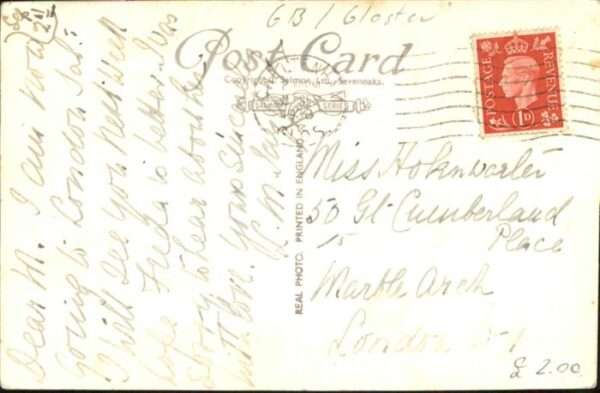 GB / Gloster
Post Card
Copyright Salmon Ltd., Sevenoaks.
POSTAGE
REVENUE
1D
REAL PHOTO. PRINTED IN ENGLAND
Dear M. I am not
going to London Sat:
I shall see you next week
hope Freda is better. Was
sorry to hear about her
with love. Yours Sincer
Miss Hoknwarter
50 Gt Cumberland
Place
Marble Arch
London W-1
£ 2.00